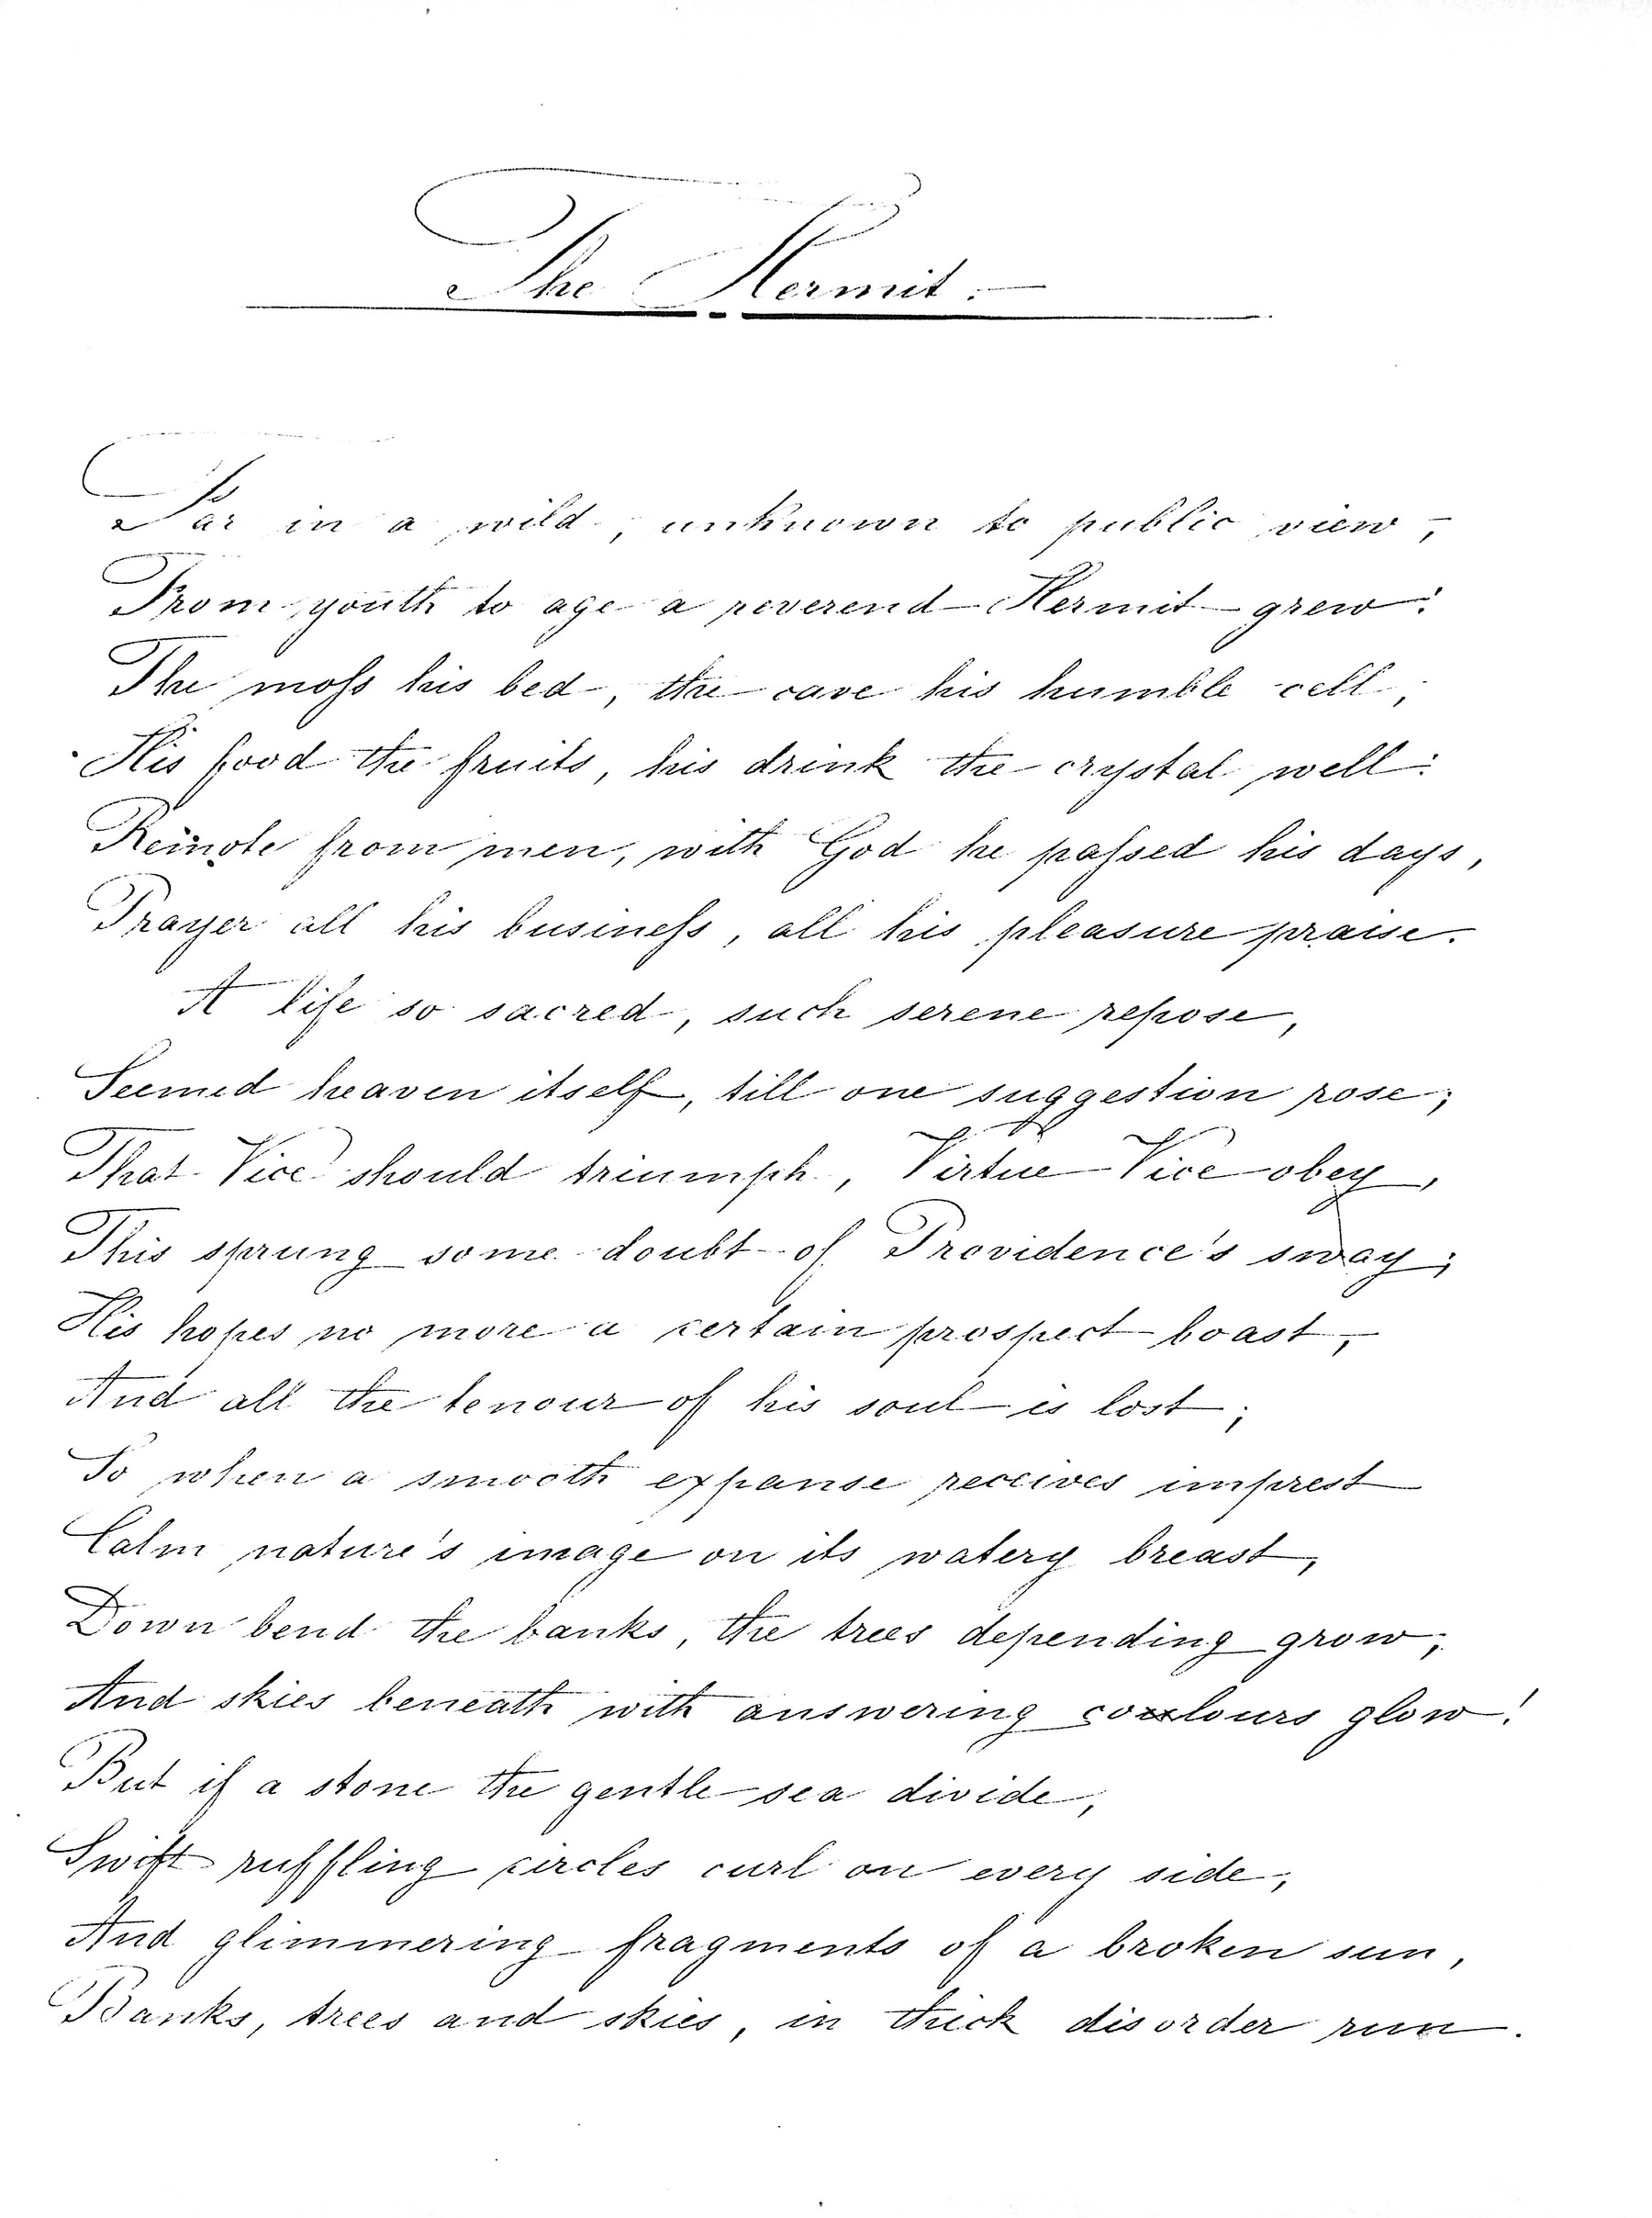 The Hermit.—
Far in a wild, unknown to public view,
From youth to age a reverend Hermit grew:
The moſs his bed, the cave his humble cell,
His food the fruits, his drink the crystal well:
Remote from men, with God he paſsed his days,
Prayer all his busineſs, all his pleasure praise.
A life so sacred, such serene repose,
Seemed heaven itself, till one suggestion rose;
That Vice should triumph, Virtue Vice obey,
This sprung some doubt of Providence's sway;
His hopes no more a certain prospect boast,
And all the tenour of his soul is lost;
So when a smooth expanse receives imprest
Calm nature's image on its watery breast,
Down bend the banks, the trees depending grow,
And skies beneath with answering coulours glow!
But if a stone the gentle sea divide,
Swift ruffling circles curl on every side,
And glimmering fragments of a broken sun,
Banks, trees and skies, in thick disorder run.